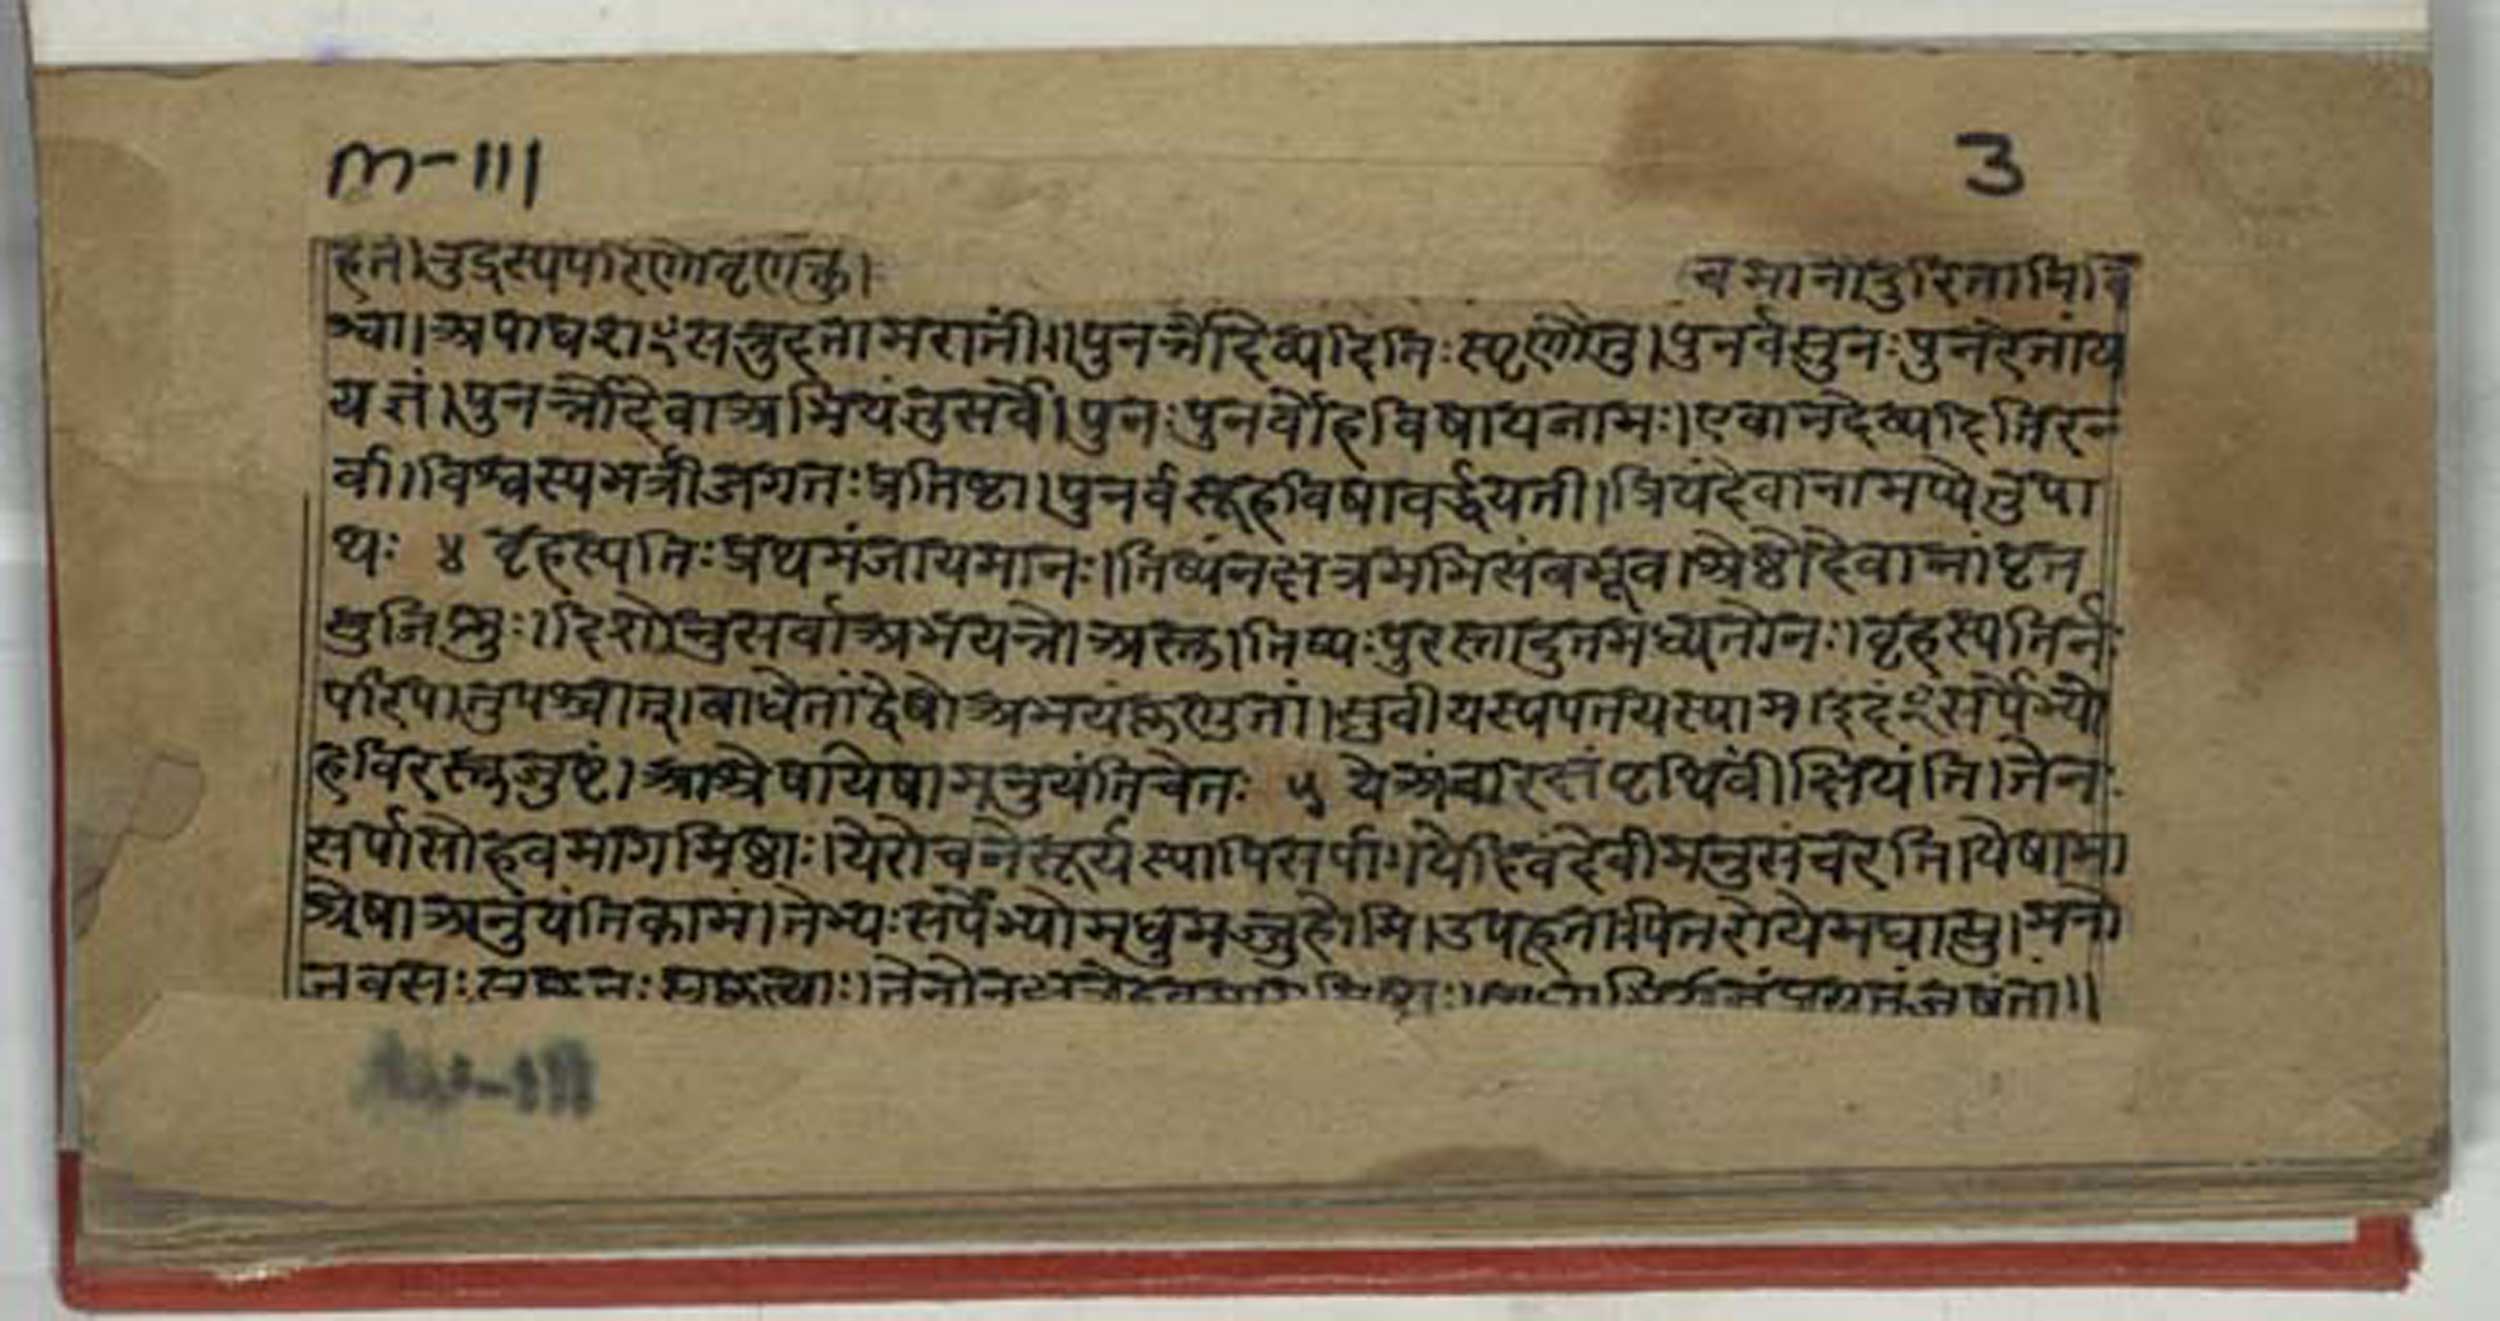 m-111
3
हेतीरुद्रस्यपरिणोवृणक्तु। चमानादुरितानिवि
श्वा।अपाघशꣳसन्नुदतामरातीं।।पुनर्नोदेव्यदितिःस्पृणोतु।पुनर्वसूनःपुनरेतांय
यज्ञं।पुनर्नोदेवाअभियंतुसर्वे।पुनःपुनर्वोहविषायजामः।एवानदेव्यदितिरन
र्वा।विश्वस्यभर्त्रीजगतःप्रतिष्ठा।पुनर्वसूहविषावर्द्धयती।प्रियंदेवानामप्येतुपा
थः ४ बृहस्पतिःप्रथमंजायमानः।तिष्यंनक्षत्रमभिसंबभूव।श्रेष्ठोदेवानांपृत
सुजिष्णुः।दिशोनुसर्वाअभयन्नोअस्तु।तिष्यःपुरस्तादुतमध्यतोनः।बृहस्पतिर्नः
परिपातुपश्चात्।बाधेतांद्वेषोअभयंकृणुतां।सुवीर्यस्यपतयस्याम।इदꣳसर्पेभ्यो
हविरस्तुजुष्टं।आश्रेषायेषामनुयंतिचेतः ५ येअंतरिक्षंपृथिवींक्षियंति।तेनः
सर्पासोहवमागमिष्ठाः।येरोचनेसूर्यस्यापिसर्पाः।येदिवंदेवीमनुसंचरंति।येषामा
श्रेषाअनुयंतिकामं।तेभ्यःसर्पेभ्योमधुमज्जुहोमि।उपहूताःपितरोयेमघासु।मनो
जवसःसुकृतःसुकृत्याः।तेनो